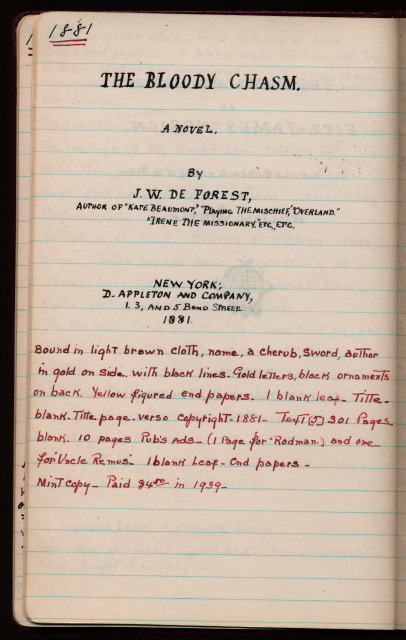 1881
THE BLOODY CHASM.
A NOVEL.
By
J. W. DE FOREST,
AUTHOR OF "KATE BEAUMONT," "PLAYING THE MISCHIEF," "OVERLAND."
"IRENE THE MISSIONARY," ETC., ETC.
NEW YORK;
D. APPLETON AND COMPANY,
1. 3, AND 5 BOND STREET
1881.
Bound in light brown cloth, name, a cherub, sword, author
in gold on side. with black lines. Gold letters, black ornaments
on back. Yellow figured end papers. 1 blank leaf - Title -
blank. Title page - verso copyright - 1881 - Text [5] 301 Pages
blank. 10 pages Pub's Ads - (1 Page for "Rodman") and one
for "Uncle Remus" 1 blank Leaf - End papers -
Mint copy - Paid $4.50 in 1939 -